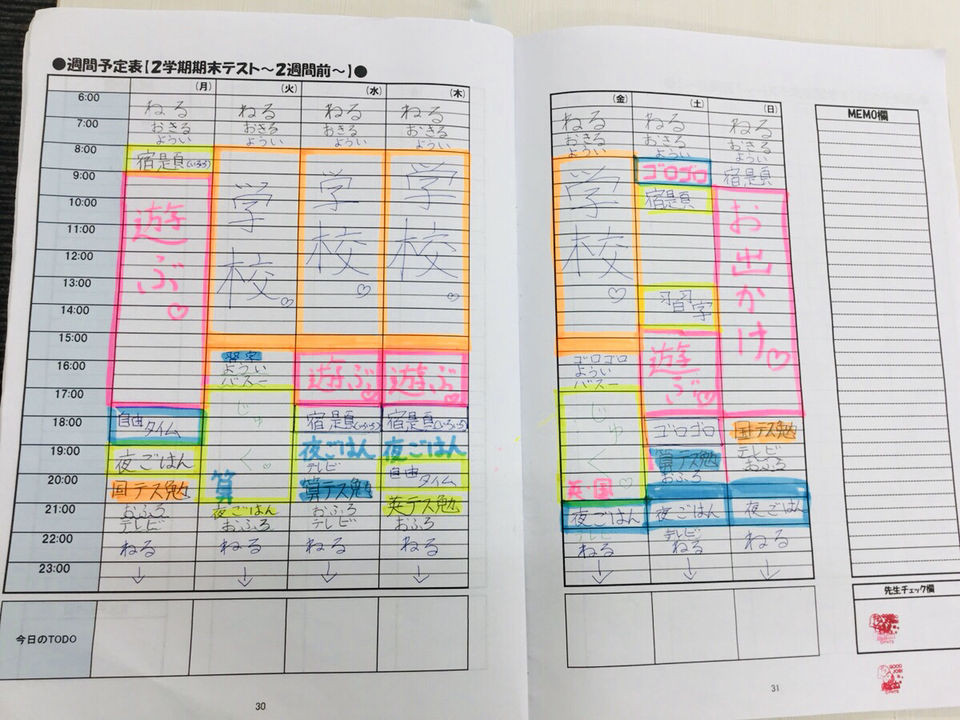 ●週間予定表【2学期期末テスト～2週間前～】●
(月)
(火)
(水)
(木)
6:00
7:00
8:00
9:00
10:00
11:00
12:00
13:00
14:00
15:00
16:00
17:00
18:00
19:00
20:00
21:00
22:00
23:00
今日のTODO
ねる
おきる
ようい
宿題(いろいろ)
遊ぶ♡
自由
タイム
夜ごはん
国テス勉
おふろ
テレビ
ねる
↓
ねる
おきる
ようい
学
校♡
習字
ようい
バスー
じゅ
く。
算
夜ごはん
おふろ
ねる
↓
ねる
おきる
ようい
学
校
♡
遊ぶ♡
宿題
夜ごはん
テレビ
算テス勉
おふろ
テレビ
ねる
↓
ねる
おきる
ようい
学
校
♡
遊ぶ
宿題(いろいろ)
夜ごはん
自由
タイム
英テス勉
おふろ
ねる
↓
30
(金)
(土)
(日)
ねる
おきる
ようい
学
校
♡
ゴロゴロ
ようい
バスー
じゅ
く♡
英・国
夜ごはん
テレビ
ねる
↓
ねる
おきる
ようい
ゴロゴロ
宿題
習字
遊
ぶ♡
ゴロゴロ
算テス勉
おふろ
夜ごはん
テレビ
ねる
↓
ねる
おきる
ようい
宿題
お
出
か
け♡
国テス勉
テレビ
おふろ
夜ごはん
ねる
↓
MEMO欄
先生チェック欄
GOOD
31